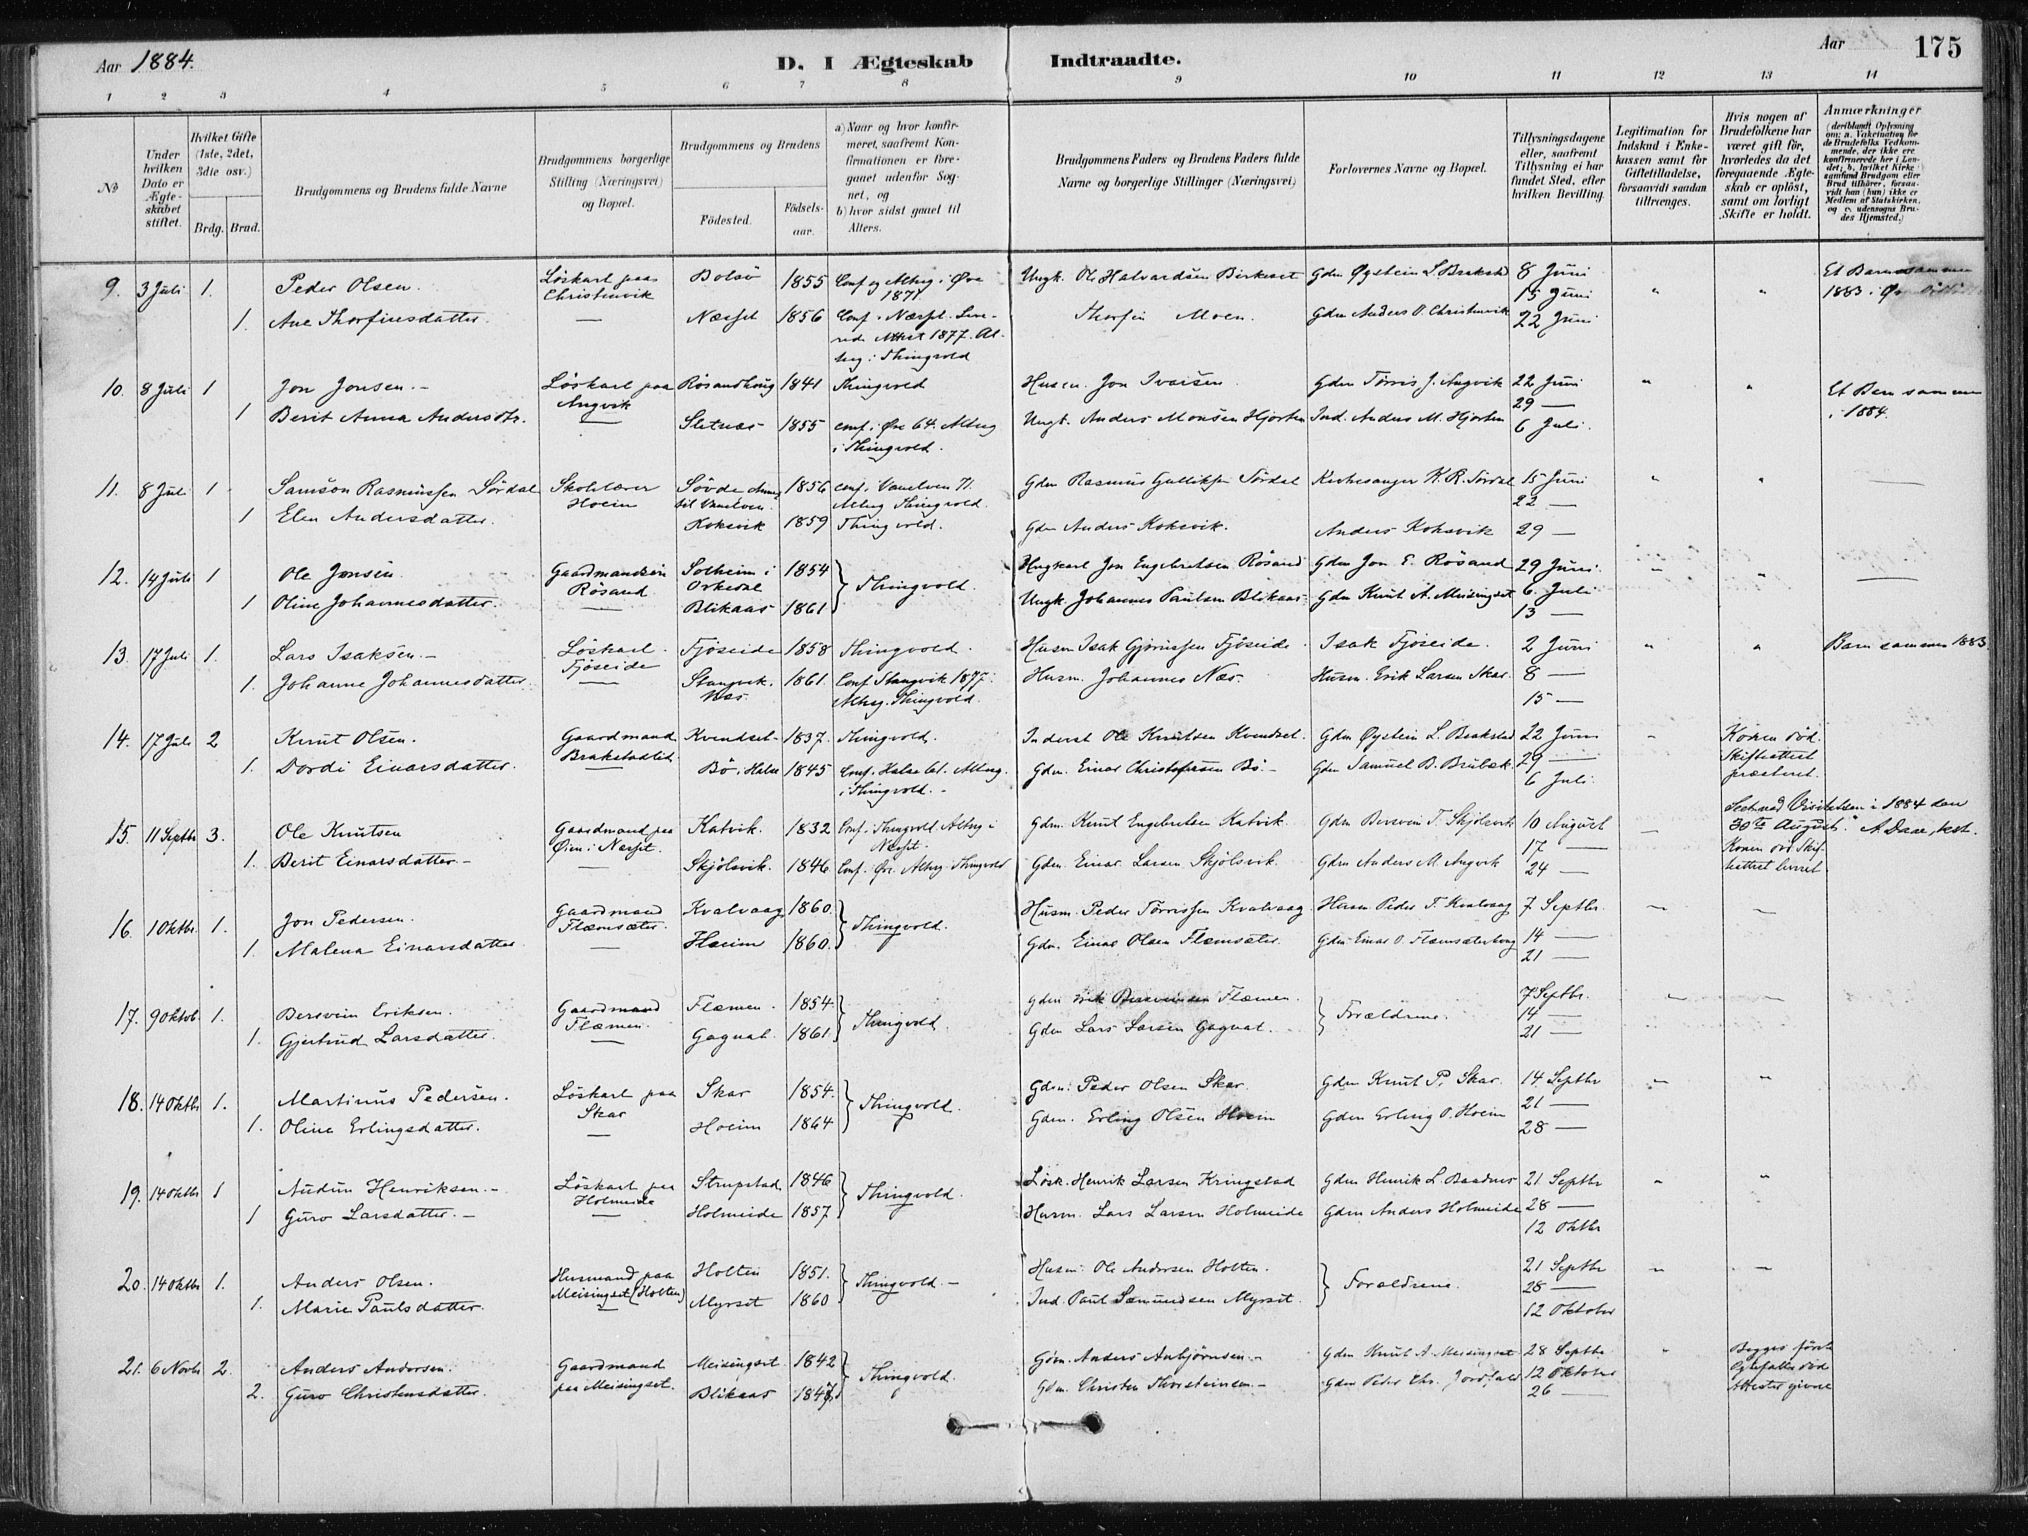 Aar 1884.
D. I Ægteskab Indtraadte.
Aar
175
1 2 3 4 5 6 7 8 9 10 11 12 13 14
No
Under hvilken Dato er Ægteskabet stiftet.
Hvilket Gifte (1ste, 2det, 3die osv.)
Brdg. Brud.
Brudgommens og Brudens fulde Navne
Brudgommens borgerlige Stilling (Næringsvei) og Bopæl.
Brudgommens og Brudens
Fødested.
Fødselsaar.
a) Naar og hvor konfirmeret, saafremt Konfirmationen er foregaaet udenfor Sognet, og
b) hvor sidst gaaet til Alters.
Brudgommens Faders og Brudens Faders fulde Navne og borgerlige Stillinger (Næringsvei)
Forlovernes Navne og Bopæl.
Tillysningsdagene eller, saafremt Tillysning ei har fundet Sted, efter hvilken Bevilling.
Legitimation for Indskud i Enkekassen samt for Giftetilladelse, forsaavidt saadan tiltrænges.
Hvis nogen af Brudefolkene har været gift før, hvorledes da det foregaaende Ægteskab er opløst, samt om lovligt Skifte er holdt.
Anmærkninger (deriblandt Oplysning om: a. Vakcination for de Brudefolks Vedkommende, der ikke ere konfirmerede her i Landet; b. hvilket Kirkesamfund Brudgom eller Brud tilhører, forsaavidt han (hun) ikke er Medlem af Statskirken, og c. udensogns Brudes Hjemsted.)
9. 3 Juli 1. Peder Olsen. Löskarl paa Christinvik Bolsö 1855 Conf og Altrg. i Øre 1871 Ungk. Ole Halvardsen Birkeset Gdm Øystein L. Brakstad 8 Juni 15 Juni " " Et Barn sammen 1883 i
1. Ane Thorfinsdatter. — Næsset 1856 Conf. i Næsset. Attest 1877. Altrg. i Thingvold Thorfin Moen. Gdm Anders O. Christinvik 22 Juni
10. 8 Juli 1 Jon Jonsen. - Löskarl paa Angvik Rösandhaug 1841 Thingvold Husm. Jon Ivarsen. Gdm Tørris J. Angvik 22 Juni 29 — " " Et Barn sammen i 1884.
1 Berit Anna Andersdtr. — Sletnæs 1855 conf. i Øre 64. Altrg i Thingvold. Ungk. Anders Monsen Hjorten Ind. Anders M. Hjorten 6 Juli.
11. 8 Juli 1 Samson Rasmussen Sördal Skolelærer Hoem Søvde Annex til Vanelven. 1856 conf. i Vanelven 71. Altrg Thingvold. Gdm Rasmus Gullikssen Sördal Kirkesanger K. R. Sördal 15 Juni 22 — " " —
1 Elen Andersdatter. Koksvik 1859 Thingvold. Gdm Anders Koksvik. Anders Koksvik 29 —
12. 14 Juli 1 Ole Jonsen. Gaardmandsön Rösand Solheim i Orkedal 1854 } Thingvold. Ungkarl Jon Engebretsen Rösand Gdm Jon E. Rösand 29 Juni. " " —
1 Oline Johannesdatter. — Blikaas 1861 Ungk. Johannes Paulsen Blikaas Gdm Knut A. Meisingset 6 Juli 13 —
13. 17 Juli 1. Lars Isaksen. - Löskarl. Fjöseide Fjöseide 1858 Thingvold. Husm Isak Fjöseide Isak Fjöseide. 2 Juni " " Barn sammen 1883.
1. Johanne Johannesdatter. — Stangvik. Næs. 1861 Conf. Stangvik 1877. Altrg. Thingvold. Husm. Johannes Næs. Husm. Erik Larsen Skar 8 — 15 —
14. 17 Juli 2 Knut Olsen. Gaardmand Brakstadlid. Kvendset 1837. Thingvold. Inderst Ole Knutsen Kvendset. Gdm Øystein L. Brakstad 22 Juni 29 — " Konen död. Skifteattest præsteret.
1. Dordi Einarsdatter. — Bö i Halse 1845 Conf. i Halse 61. Altrg. i Thingvold. Gdm. Einar Christofersen Bö. - Gdm Samuel B. Brubæk. 6 Juli.
Sect. ved Visitatsen i 1884 den 30te August. A. Daae, test.
15. 11 Septbr 3. Ole Knutsen Gaardmand paa Øien i Næsset. Katvik. 1832 Conf. i Thingvold. Altrg i Næsset. Gdm. Knut Engebretsen Katvik Gdm Bersvein T. Skjölsvik 10 August 17 — Konen död Skifteattest leveret.
1. Berit Einarsdatter. - — Skjölsvik. 1846. Conf. Øre. Altrg. Thingvold Gdm. Einar Larsen Skjölsvik Gdm Anders M. Angvik 24 —
16. 1 Oktbr. 1. Jon Pedersen. Gaardmand Flemsæter. Kvalvaag 1860. } Thingvold. Husm. Peder Tørrissen Kvalvaag Husm Peder T. Kvalvaag 7 Septbr. " "
1. Malena Einarsdatter — Hoeim 1860. Gdm. Einar Olsen Flemsæter Gdm. Einar O. Flemsæterhoug 14 — 21 —
17. 9 Oktob. 1. Bersvein Eriksen. Gaardmand Flemen. Flæmen. 1854. } Thingvold. Gdm Erik Bersveinsen Flæmen. } Forældrene. 7 Septbr. 14 — " "
1. Gjertrud Larsdatter. — Gagnat. 1861. Gdm Lars Larsen Gagnat. 21 —
18. 14 Oktbr 1. Martinus Pedersen. Löskarl paa Skar Skar 1854. } Thingvold. Gdm. Peder Olsen Skar. Gdm Knut P. Skar. 14 Septbr 21 — " "
1. Oline Erlingsdatter. — Hoeim 1864 Gdm. Erling Olsen Hoeim Gdm Erling O. Hoeim 28 —
19. 14 Oktbr 1 Audun Henriksen. - Löskarl paa Holmeide Strupstad 1846 } Thingvold. Løsk. Henrik Larsen Kringstad Gdm Henrik L. Baadnes 21 Septbr " "
1 Guro Larsdatter. - — Holmeide 1857 Husm. Lars Larsen Holmeide Gdm Anders Holmeide 28 — 12 Oktbr
20. 14 Oktbr 1. Anders Olsen. Husmand paa Meisingset (Holten) Holten 1851. } Thingvold. - Husm. Ole Andersen Holten. } Forældrene. 21 Septbr 28 — " "
1. Marie Paulsdatter. — Myrset 1860 Ind. Paul Sæmundsen Myrset. 12 Oktober
21. 6 Novbr 2. Anders Andersen. Gaardmand paa Meisingset. Meisingset 1842 } Thingvold. Gdm. Anders Anbjörnsen. - Gdm Knut A. Meisingset 28 Septbr 12 Oktober " Begges förste Egtefæller död Attester givne
2. Guro Christensdatter. Blikaas Gdm. Christen Thorsteinsen. - Gdm Peder Chr. Jordfald 26 —